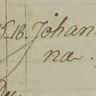 18. Johan=
na.